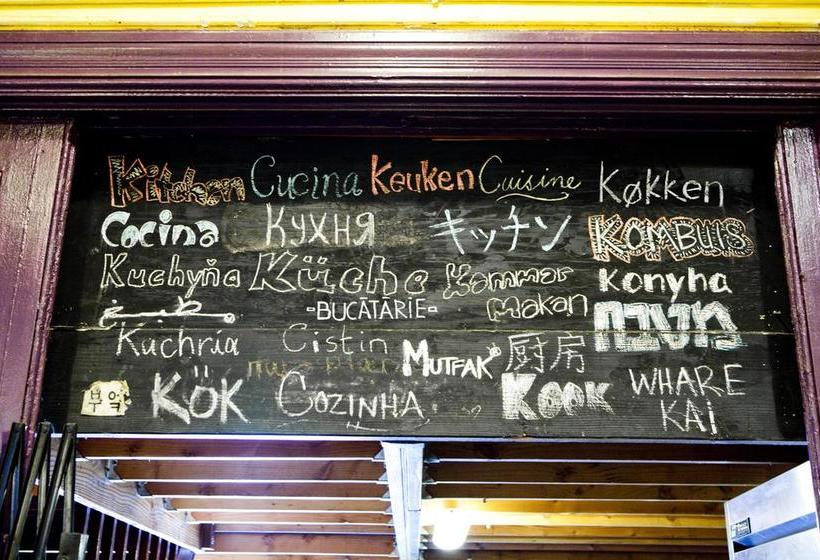 Kitchen Cucina Keuken Cuisine Køkken
Cocina КУХНЯ キッチン KOMBUIS
Kuchyňa Küche Kammar Konyha
مطبخ -BUCĂTĂRIE- makan מטבח
Kuchnia Cistin MUTFAK 厨房
부엌 KÖK COZINHA KOOK WHARE
KAi